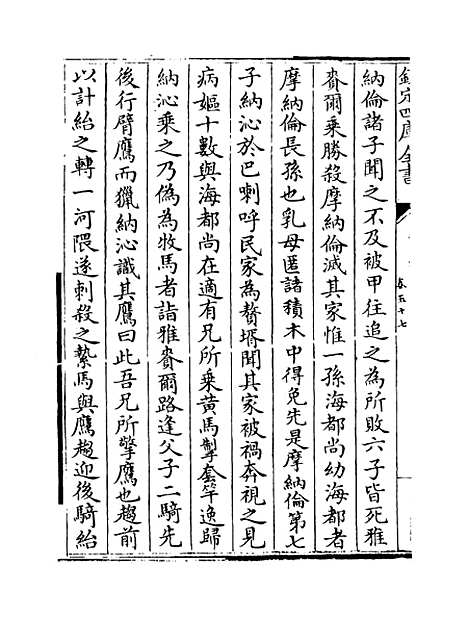 欽定四庫全書
卷五十七
納倫諸子聞之不及被甲往追之為所敗六子皆死雅
賚爾乘勝殺摩納倫滅其家惟一孫海都尚幼海都者
摩納倫長孫也乳母匿諸積木中得免先是摩納倫第七
子納沁於巴喇呼民家為贅壻聞其家被禍奔視之見
病嫗十數與海都尚在適有兄所乘黄馬掣套竿逸歸
納沁乘之乃偽為牧馬者詣雅賚爾路逢父子二騎先
後行臂鷹而獵納沁識其鷹曰此吾兄所擎鷹也趨前
以計紿之轉一河隈遂刺殺之縶馬與鷹趨迎後騎紿